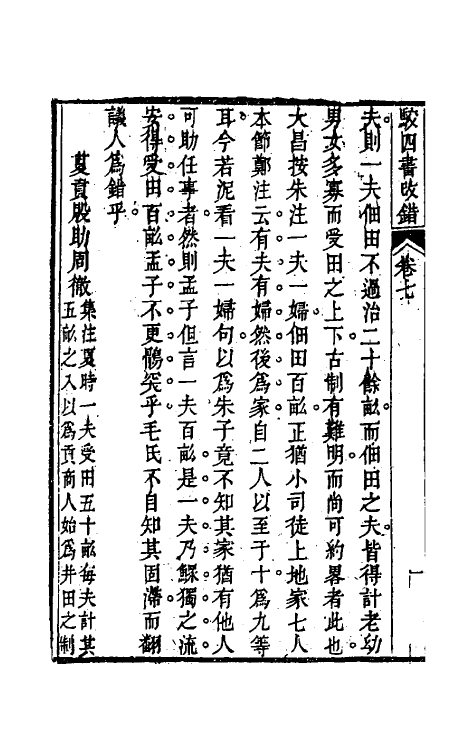 駁四書改錯
卷七
一
夫則一夫佃田不過治二十餘畝而佃田之夫皆得計老幼
男女多寡而受田之上下古制有難明而尚可約畧者此也
大昌按朱注一夫一婦佃田百畝正猶小司徒上地家七人
本節鄭注云有夫有婦然後爲家自二人以至于十爲九等
耳今若泥看一夫一婦句以爲朱子竟不知其家猶有他人
可助任事者然則孟子但言一夫百畝是一夫乃鰥獨之流
安得受田百畝孟子不更鶻突乎毛氏不自知其固滯而翻
議人爲錯乎
夏貢殷助周徹集注夏時一夫受田五十畝每夫計其
五畝之入以爲貢商人始爲井田之制